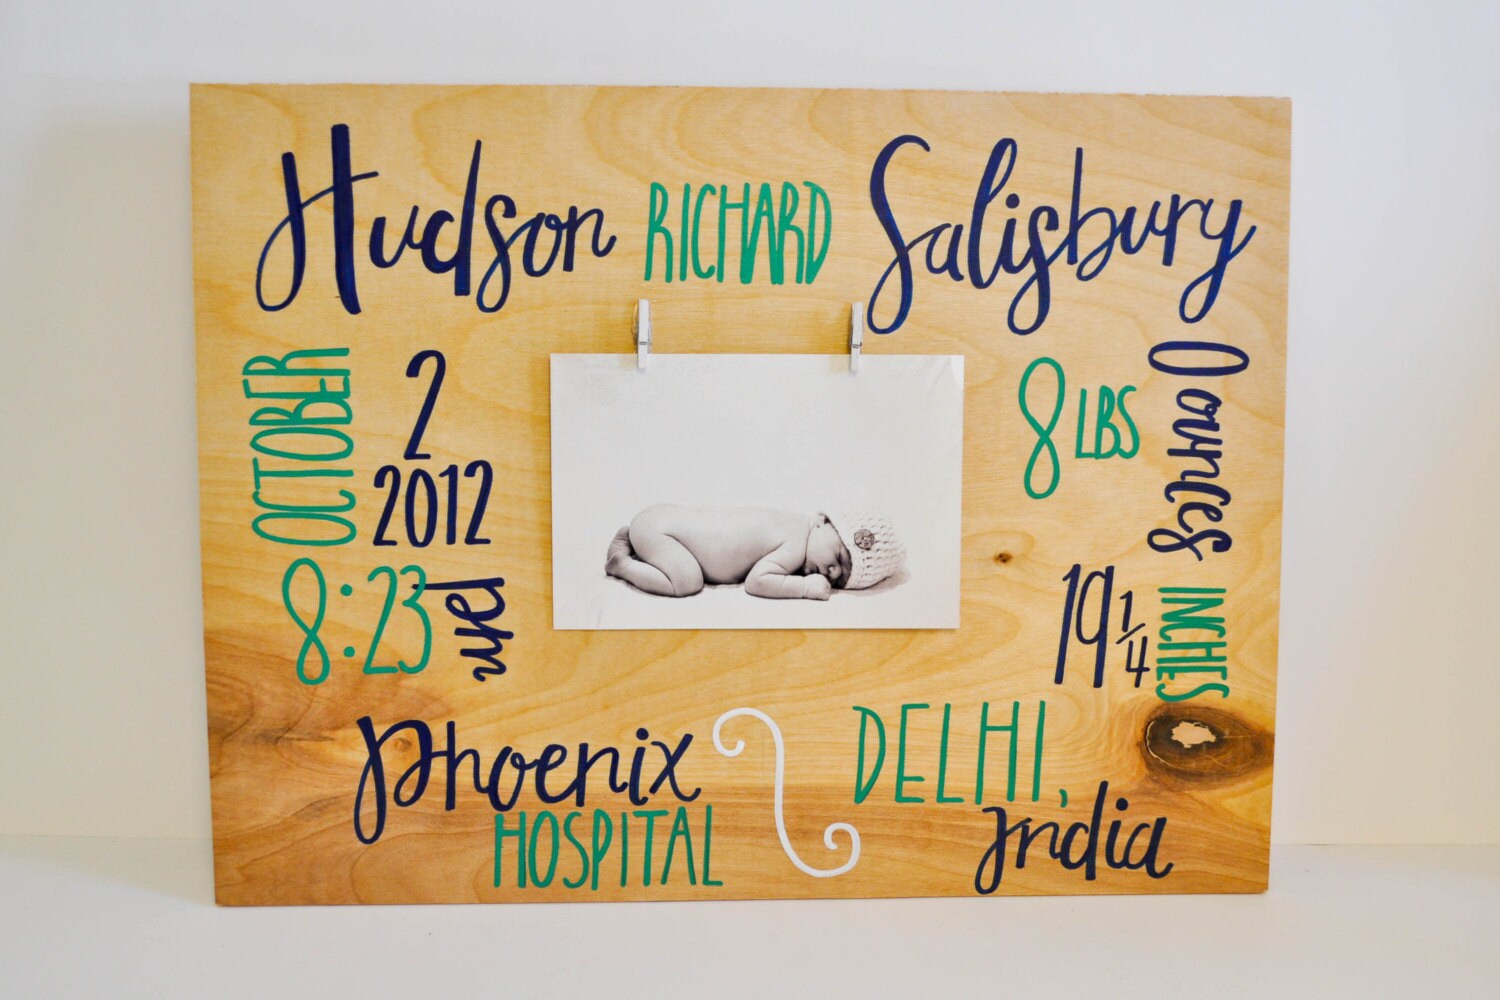 Hudson RICHARD Salisbury
OCTOBER 2
2012
8:23 pm
8 LBS
0 ounces
19 1/4 INCHES
Phoenix
HOSPITAL
DELHI,
India